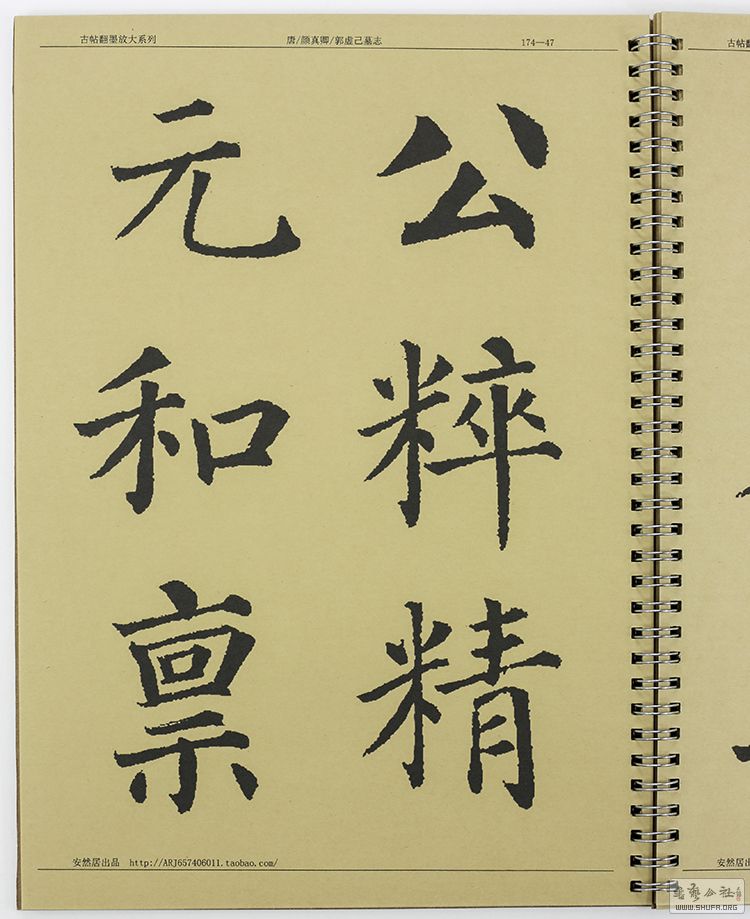 古帖翻墨放大系列 唐/颜真卿/郭虚己墓志 174—47
公粹精
元和禀
安然居出品 http://ARJ657406011.taobao.com/
古帖翻
安然居出
WWW.SHUFA.ORG